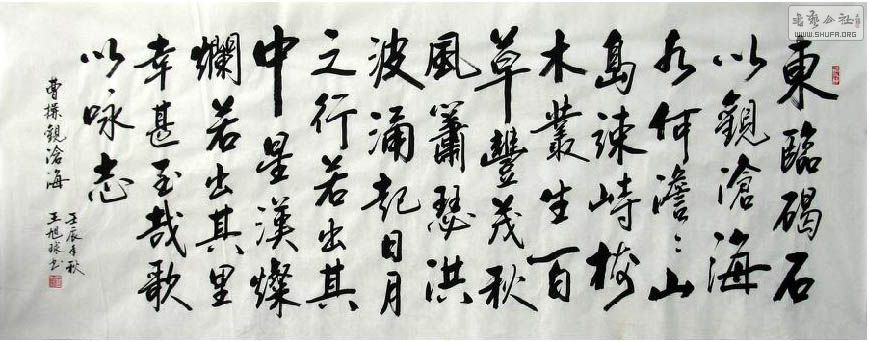 東臨碣石
以觀滄海
水何澹〻山
島竦峙樹
木叢生百
草豐茂秋
風簫瑟洪
波涌起日月
之行若出其
中星漢燦
爛若出其里
幸甚至哉歌
以咏志
曹操觀滄海
壬辰年秋
王旭球书
书艺公社
WWW.SHUFA.ORG